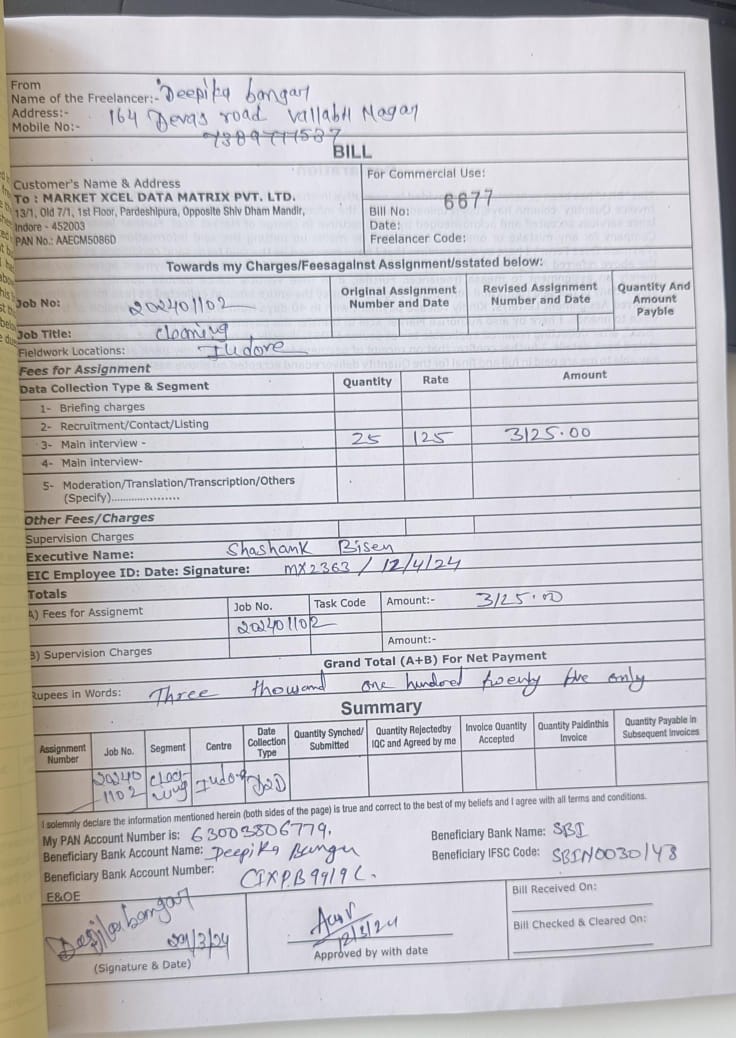 From
Name of the Freelancer:- Deepika bangar
Address:- 164 Devas road Vallabh Nagar
Mobile No:-
BILL
Customer's Name & Address
To : MARKET XCEL DATA MATRIX PVT. LTD.
13/1, Old 7/1, 1st Floor, Pardeshipura, Opposite Shiv Dham Mandir,
Indore - 452003
PAN No.: AAECM5086D
For Commercial Use:
Bill No: 6677
Date:
Freelancer Code:
Towards my Charges/Feesagainst Assignment/sstated below:
Job No: 202401102
Original Assignment Number and Date
Revised Assignment Number and Date
Quantity And Amount Payble
Job Title:
Fieldwork Locations: Indore
Fees for Assignment
Data Collection Type & Segment Quantity Rate Amount
1- Briefing charges
2- Recruitment/Contact/Listing
3- Main interview - 25 125 3125.00
4- Main interview-
5- Moderation/Translation/Transcription/Others
(Specify)....................
Other Fees/Charges
Supervision Charges
Executive Name: Shashank Bisen
EIC Employee ID: Date: Signature: MX2363 / 12/4/24
Totals
A) Fees for Assignemt Job No. Task Code Amount:- 3125.00
202401102
B) Supervision Charges Amount:-
Grand Total (A+B) For Net Payment
Rupees in Words: Three thousand one hundred twenty five only
Summary
Assignment Number Job No. Segment Centre Date Collection Type Quantity Synched/ Submitted Quantity Rejectedby IQC and Agreed by me Invoice Quantity Accepted Quantity Paidinthis Invoice Quantity Payable in Subsequent Invoices
202401102 Indore D2D
I solemnly declare the information mentioned herein (both sides of the page) is true and correct to the best of my beliefs and I agree with all terms and conditions.
My PAN Account Number is: 63003806779.
Beneficiary Bank Name: SBI
Beneficiary Bank Account Name: Deepika Bangar
Beneficiary IFSC Code: SBIN0030148
Beneficiary Bank Account Number: CIXPB9919C.
E&OE
Deepika bangar
(Signature & Date)
12/3/24
Approved by with date
Bill Received On:
Bill Checked & Cleared On: